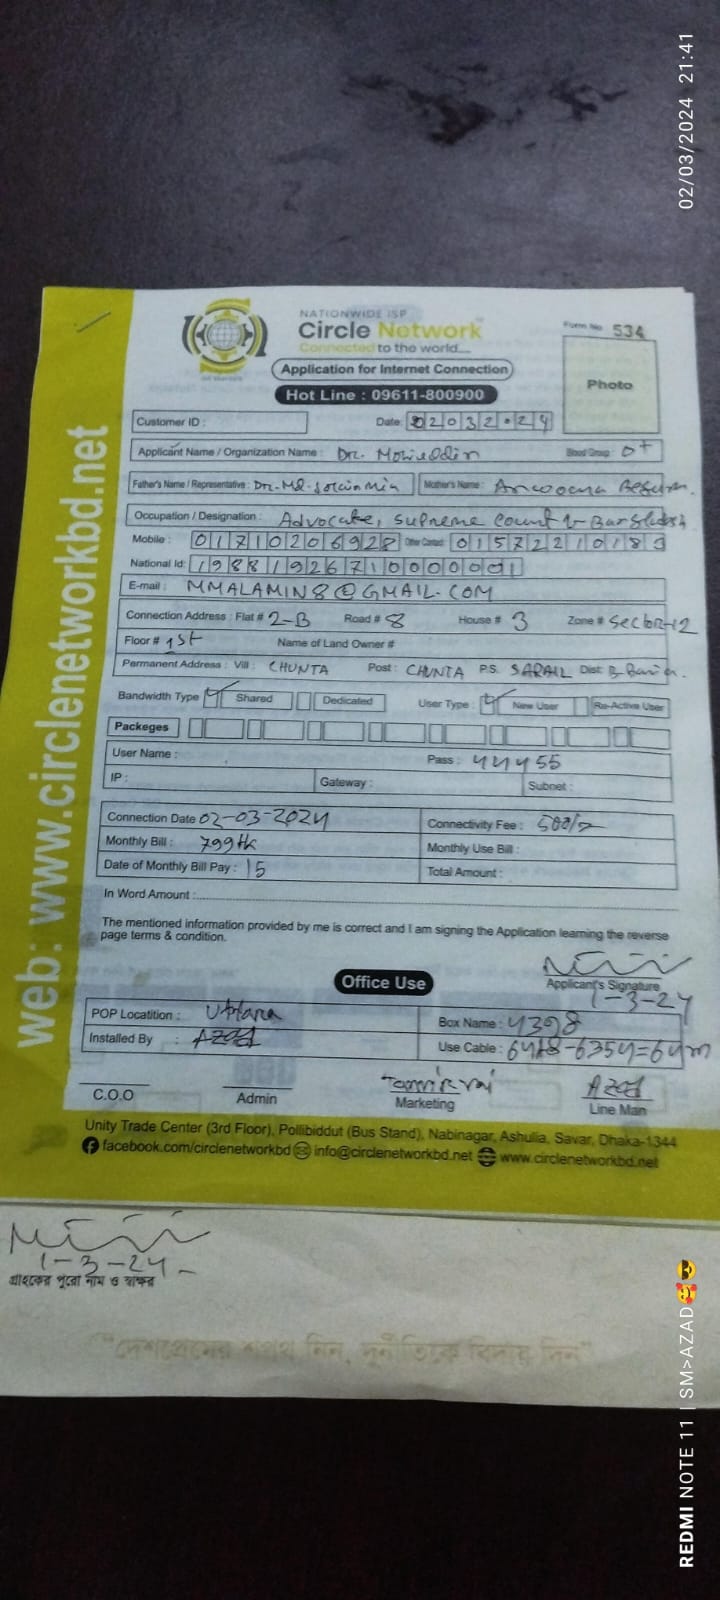 02/03/2024 21:41
NATIONWIDE ISP
Circle Network
Connected to the world....
Form No 534
Application for Internet Connection
Photo
Hot Line : 09611-800900
Customer ID :
Date: 02032024
Applicant Name / Organization Name : Dr. Moinuddin Blood Group: O+
Father's Name / Representative : Dr. Md. Mia Mother's Name : Begum.
Occupation / Designation : Advocate, Supreme Court
Mobile : 01710206928 Other Contact 01572210183
National Id: 19881926710000001
E-mail : MMALAMIN8@GMAIL.COM
Connection Address : Flat # 2-B Road # 8 House # 3 Zone # Sector-12
Floor # 1st Name of Land Owner #
Permanent Address : Vill : CHUNTA Post : CHUNTA P.S. SARAIL Dist: B. Baria.
Bandwidth Type Shared Dedicated User Type : New User Re-Active User
Packeges
User Name : Pass : 44455
IP : Gateway : Subnet :
Connection Date 02-03-2024 Connectivity Fee : 500/=
Monthly Bill : 799tk Monthly Use Bill :
Date of Monthly Bill Pay : 15 Total Amount :
In Word Amount :
The mentioned information provided by me is correct and I am signing the Application learning the reverse
page terms & condition.
Applicant's Signature
1-3-24
Office Use
POP Locatition : Uttara Box Name : 4398
Installed By : Azad Use Cable : 6418-6354=64m
C.O.O Admin Marketing Azad
Line Man
Unity Trade Center (3rd Floor), Pollibiddut (Bus Stand), Nabinagar, Ashulia, Savar, Dhaka-1344
facebook.com/circlenetworkbd info@circlenetworkbd.net www.circlenetworkbd.net
web: www.circlenetworkbd.net
1-3-24
গ্রাহকের পুরো নাম ও স্বাক্ষর
"দেশপ্রেমের শপথ নিন, দুর্নীতিকে বিদায় দিন"
REDMI NOTE 11 | SM>AZAD🥰😎